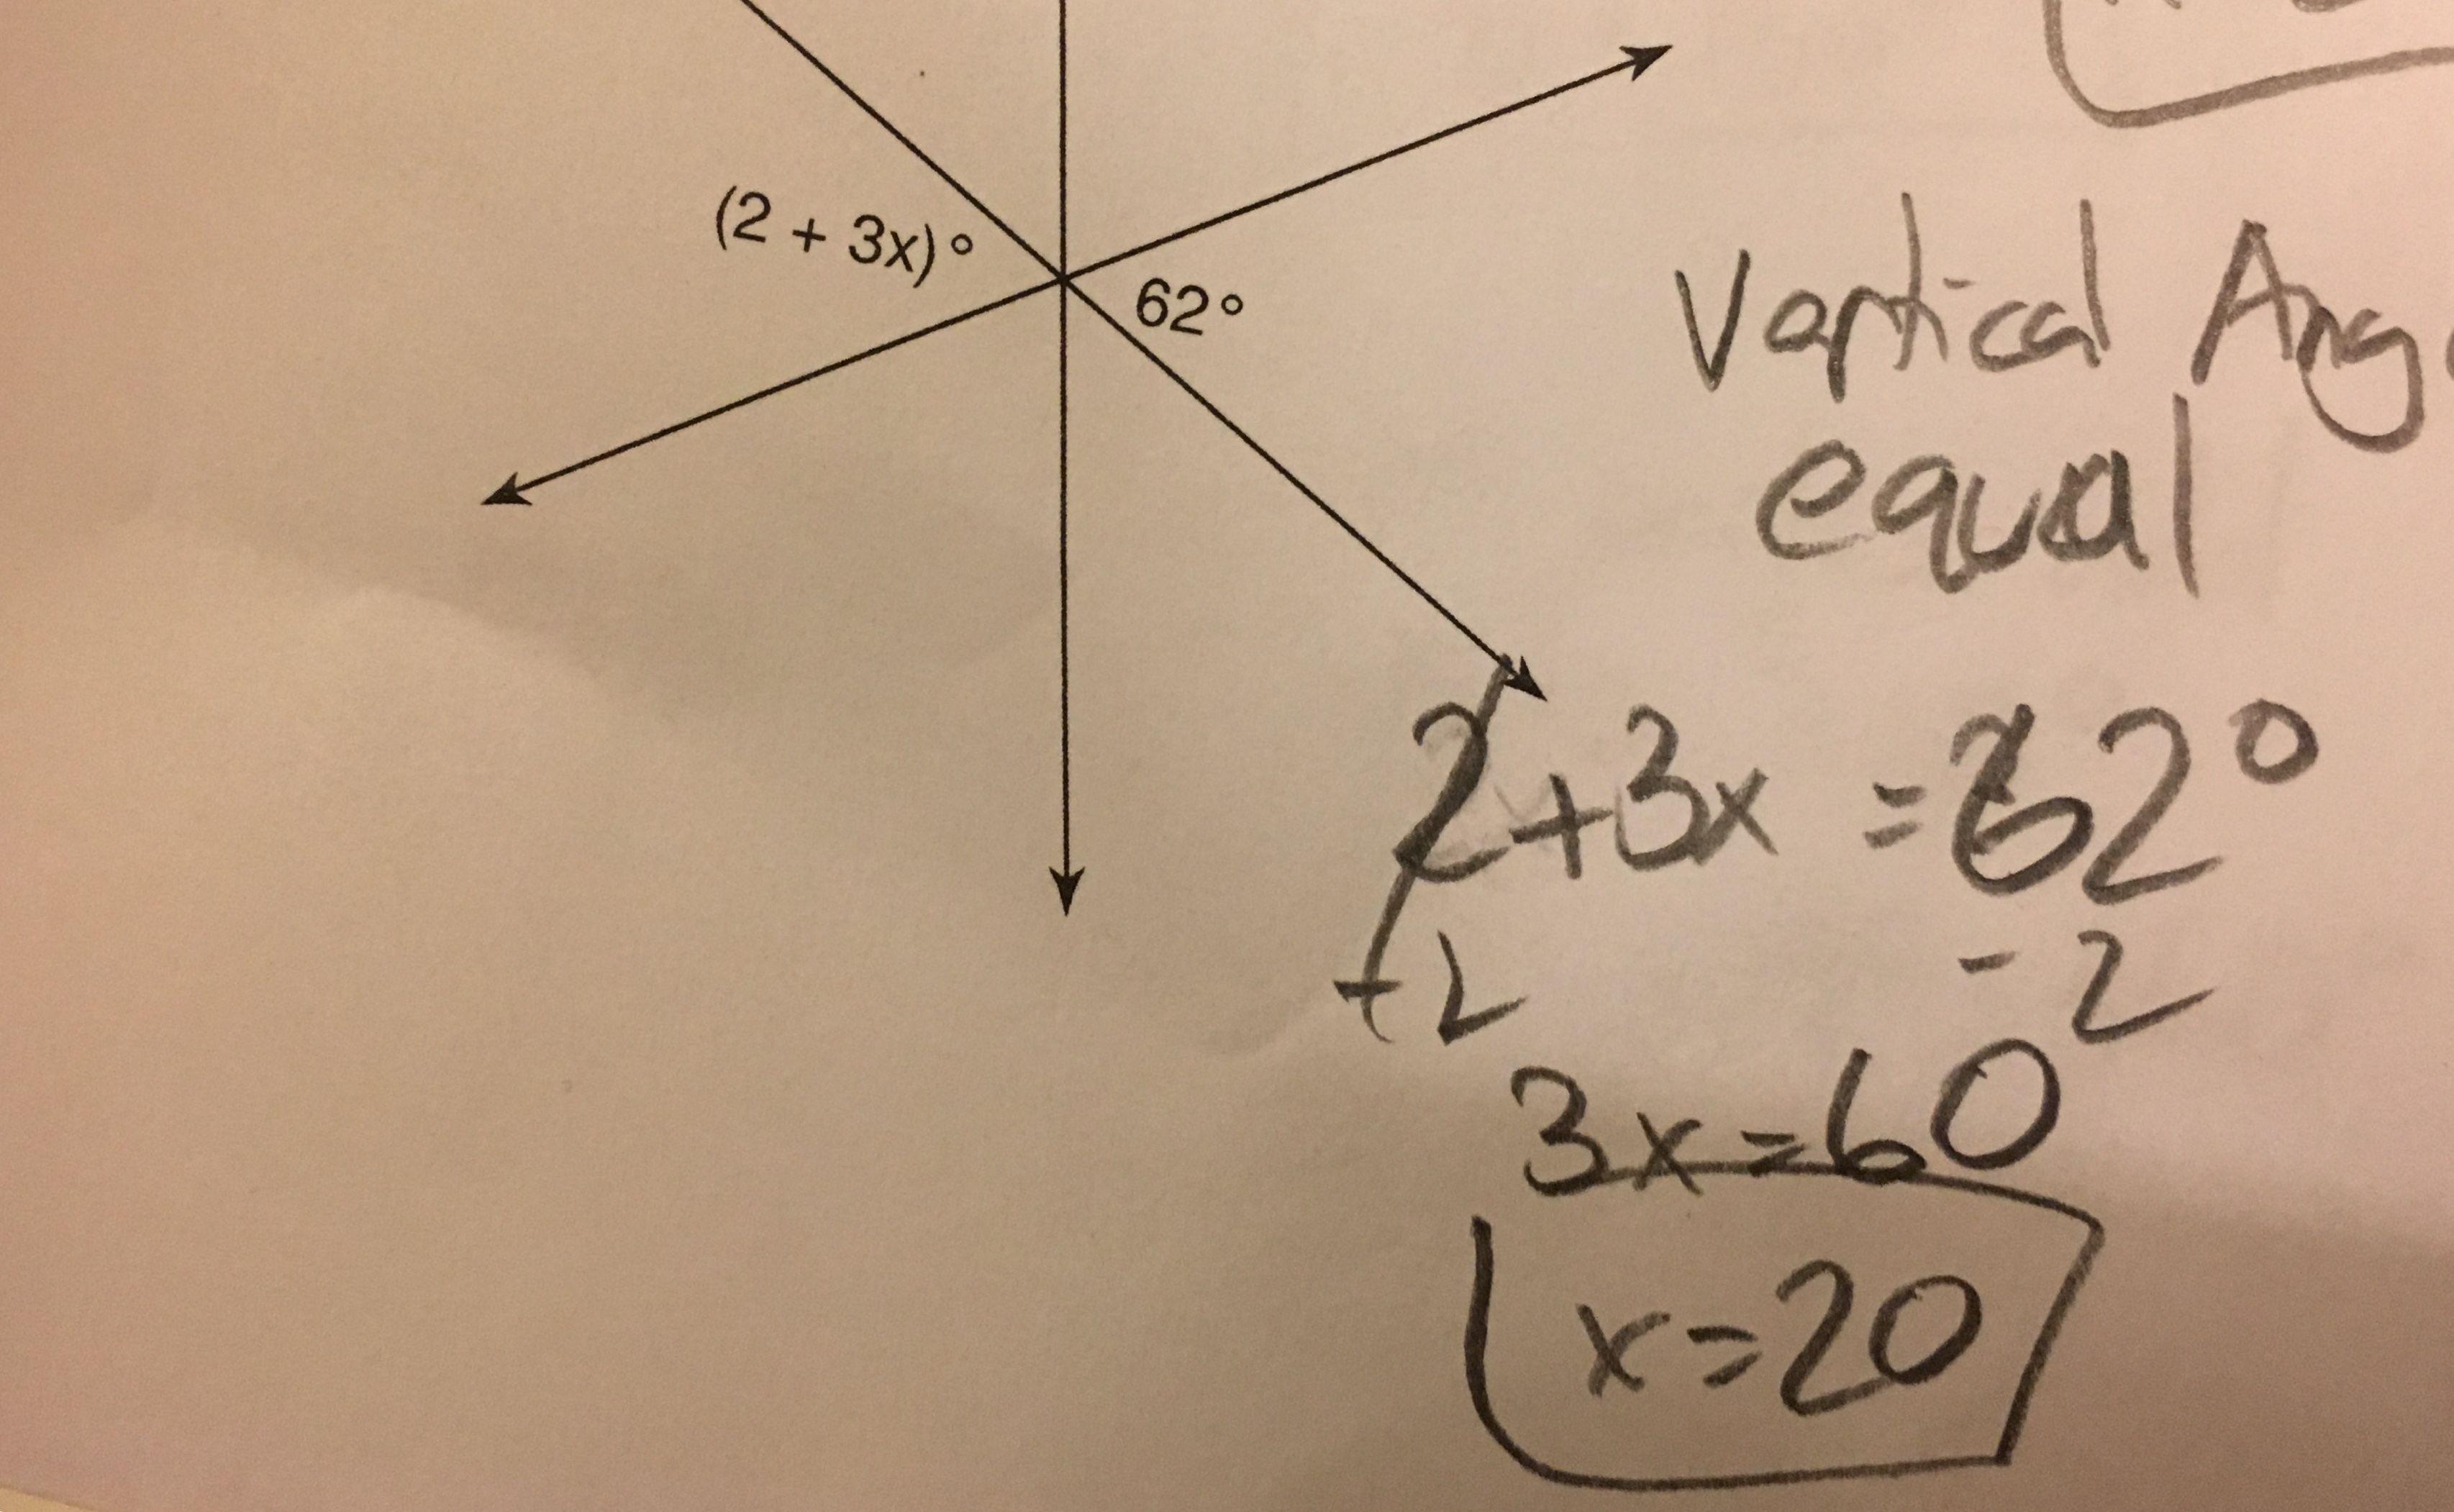 (2 + 3x)°
62°
Vertical
equal
2+3x = 62°
-2 -2
3x=60
x=20